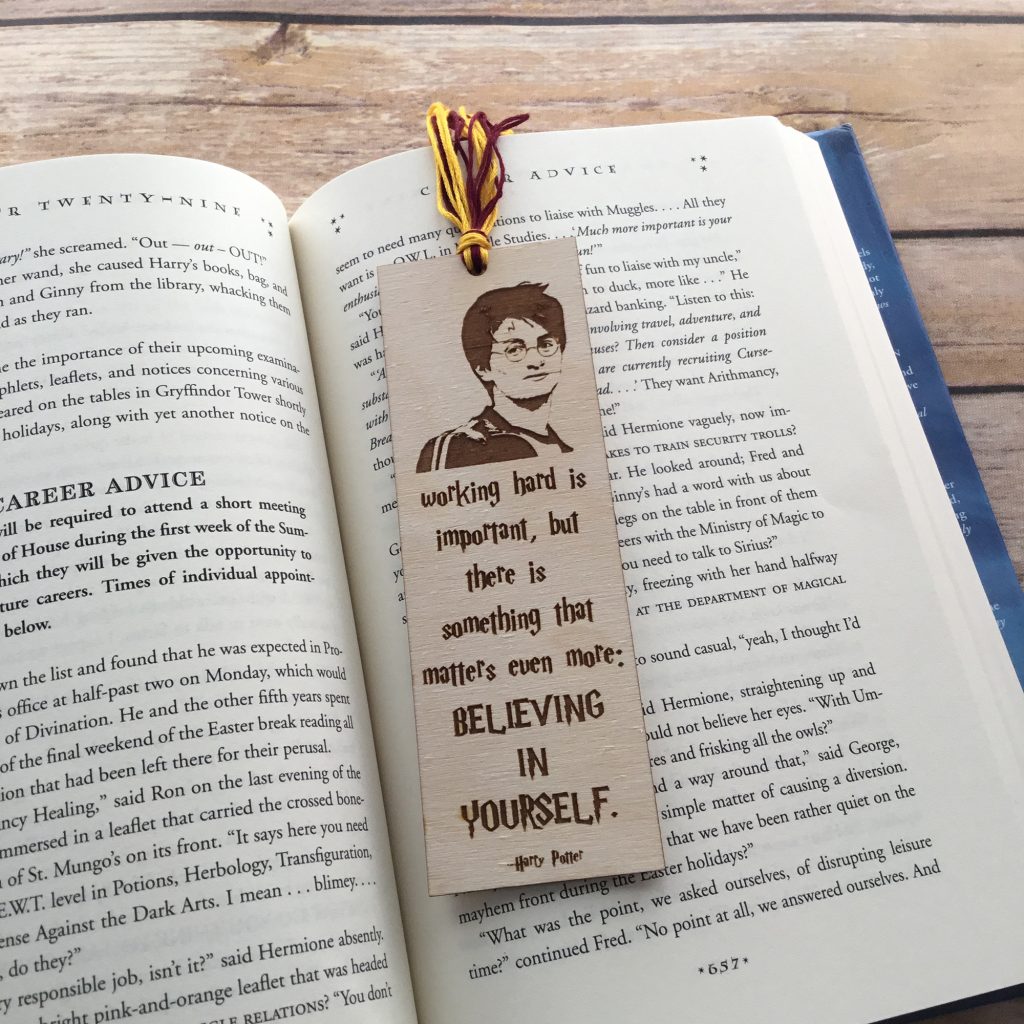 R TWENTY-NINE
ary!” she screamed. “Out — out – OUT!”
her wand, she caused Harry’s books, bag, and
and Ginny from the library, whacking them
d as they ran.
e the importance of their upcoming examina-
phlets, leaflets, and notices concerning various
eared on the tables in Gryffindor Tower shortly
holidays, along with yet another notice on the
CAREER ADVICE
will be required to attend a short meeting
of House during the first week of the Sum-
hich they will be given the opportunity to
ture careers. Times of individual appoint-
below.
wn the list and found that he was expected in Pro-
office at half-past two on Monday, which would
of Divination. He and the other fifth years spent
of the final weekend of the Easter break reading all
tion that had been left there for their perusal.
ncy Healing,” said Ron on the last evening of the
mmersed in a leaflet that carried the crossed bone-
of St. Mungo’s on its front. “It says here you need
E.W.T. level in Potions, Herbology, Transfiguration,
ense Against the Dark Arts. I mean . . . blimey. . . .
, do they?”
y responsible job, isn’t it?” said Hermione absently.
bright pink-and-orange leaflet that was headed
GLE RELATIONS? “You don’t
C R ADVICE
seem to need many qu tions to liaise with Muggles. . . . All they
want is O.W.L. in le Studies. . . . ‘Much more important is your
enthusi un!’”
“You f fun to liaise with my uncle,”
said H n to duck, more like . . .” He
was ha zard banking. “Listen to this:
“A nvolving travel, adventure, and
subst uses? Then consider a position
with are currently recruiting Curse-
Brea ad. . . .’ They want Arithmancy,
thou ne!”
id Hermione vaguely, now im-
me AKES TO TRAIN SECURITY TROLLS?
ar. He looked around; Fred and
G inny’s had a word with us about
legs on the table in front of them
eers with the Ministry of Magic to
ou need to talk to Sirius?”
y, freezing with her hand halfway
AT THE DEPARTMENT OF MAGICAL
o sound casual, “yeah, I thought I’d
id Hermione, straightening up and
ould not believe her eyes. “With Um-
res and frisking all the owls?”
d a way around that,” said George,
simple matter of causing a diversion.
that we have been rather quiet on the
mayhem front during the Easter holidays?”
“What was the point, we asked ourselves, of disrupting leisure
time?” continued Fred. “No point at all, we answered ourselves. And
*657*
working hard is
important, but
there is
something that
matters even more:
BELIEVING
IN
YOURSELF.
-Harry Potter